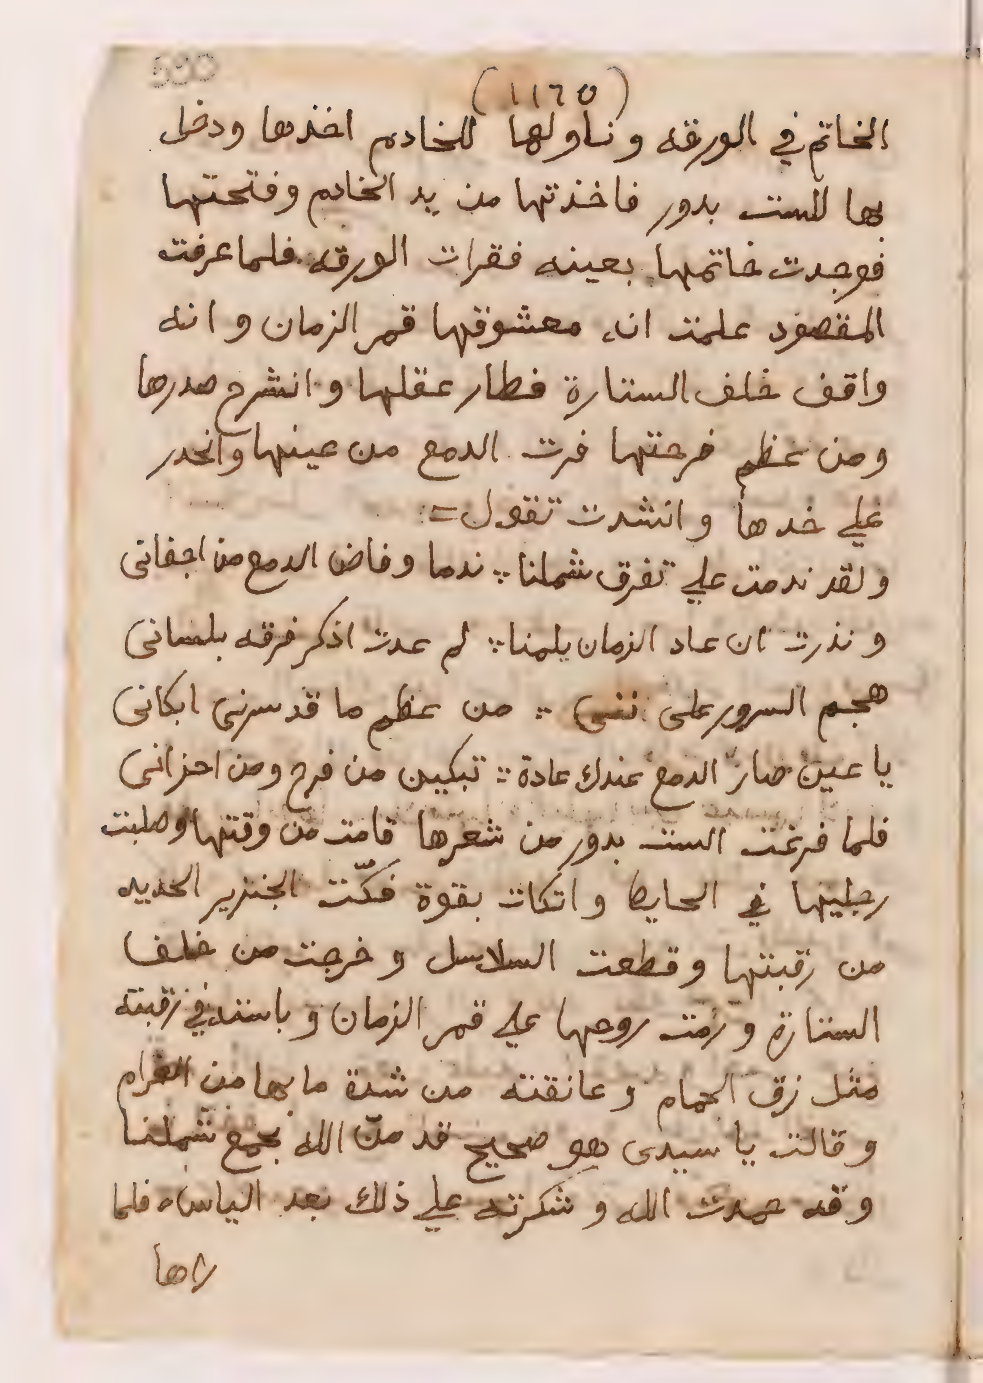 590
(١١٦٥)
الخاتم في الورقه وناولها للخادم اخذها ودخل
بها للست بدور فاخذتها من يد الخادم وفتحتها
فوجدت خاتمها بعينه فقرات الورقه فلما عرفت
المقصود علمت ان معشوقها قمر الزمان وانه
واقف خلف الستارة فطار عقلها وانشرح صدرها
ومن عظم فرحتها فرت الدمع من عينها وانحدر
علي خدها وانشدت تقول =:
ولقد ندمت علي تفرق شملنا ∴ ندما وفاض الدمع من اجفاني
ونذرت ان عاد الزمان يلمنا ∴ لم عدت اذكر فرقه بلساني
هجم السرور على نفسي ∴ من عظم ما قد سرني ابكاني
يا عين صار الدمع عندك عادة ∴ تبكين من فرح ومن احزاني
فلما فرغت الست بدور من شعرها قامت من وقتها وصلبت
رجليها في الحايط واتكات بقوة فكّت الجنزير الحديد
من رقبتها وقطعت السلاسل وخرجت من خلف
الستارة ورمت روحها علي قمر الزمان وباسته في رقبته
مثل زق الحمام وعانقته من شدة ما بها من الغرام
وقالت يا سيدي هو صحيح قد منّ الله بجمع شملنا
وقد حمدت الله وشكرته علي ذلك بعد الياس ه فلما
راها